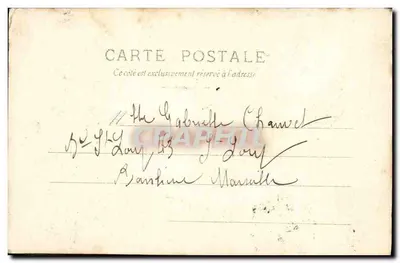 CARTE POSTALE
Ce côté est exclusivement réservé à l'adresse
Mlle Gabrielle Chauvet
Bd St Louis 23 St Louis
Banlieue Marseille